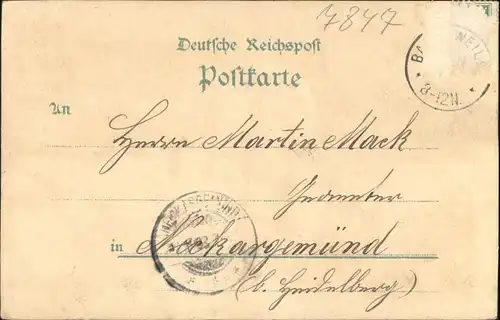 7847
Deutsche Reichspost
Postkarte
8-12N.
An
Herrn Martin Mack
in Neckargemünd
(b. Heidelberg)